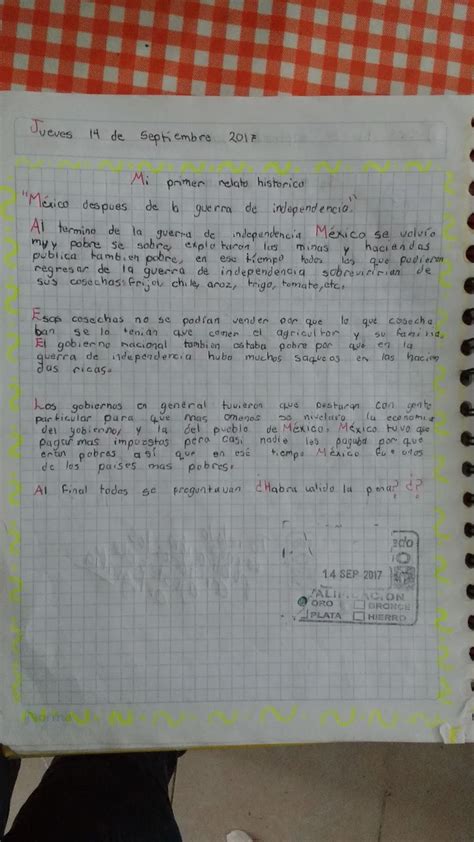 Jueves 14 de septiembre 2017
Mi primer relato historico
"México despues de la guerra de independencia."
Al termino de la guerra de independencia México se volvio
muy pobre se sobre explotaron las minas y haciendas
publica tambien pobre, en ese tiempo todos los que pudieron
regresar de la guerra de independencia sobrevivirian de
sus cosechas: frijol, chile, aroz, trigo, tomate, etc.
Esas cosechas no se podian vender por que lo que cosecha
ban se lo tenian que comer el agricultor y su familia.
El gobierno nacional tambien estaba pobre por que en la
guerra de independencia hubo muchos saqueos en las hacien
das ricas.
Los gobiernos en general tuvieron que con gente
particular para que mas omenos se nivelara la economia
del gobierno, y la del pueblo de México. México tuvo que
pagar mas impuestos pero casi nadie los pagaba por que
eran pobres asi que en ese tiempo México fue unos
de los paises mas pobres.
Al final todos se preguntavan ¿Habra valido la pena? ¿?
14 SEP 2017
ORO BRONCE
PLATA HIERRO
norma